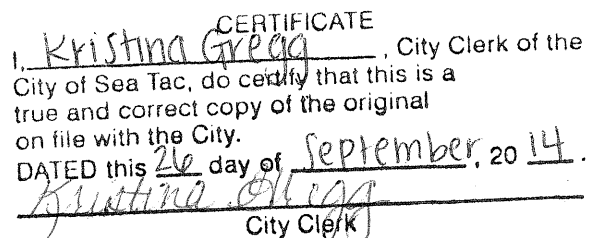 CERTIFICATE
I, Kristina Gregg, City Clerk of the
City of Sea Tac, do certify that this is a
true and correct copy of the original
on file with the City.
DATED this 26 day of September, 2014.
Kristina Gregg
City Clerk